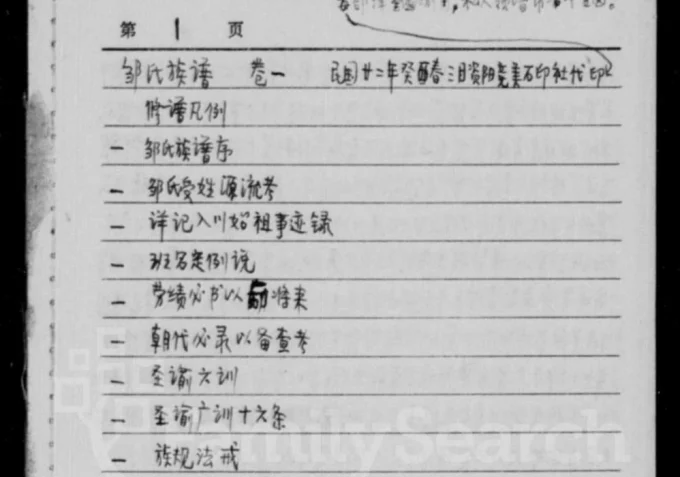 第 1 页
邹氏族谱 卷一 民国廿二年癸酉春三月资阳尧美石印社代印
修谱凡例
一 邹氏族谱序
一 邹氏受姓源流考
一 详记入川始祖事迹录
一 班名定例说
一 劳绩必书以励将来
一 朝代必录以备查考
一 圣谕六训
一 圣谕广训十六条
一 族规法戒
FamilySearch